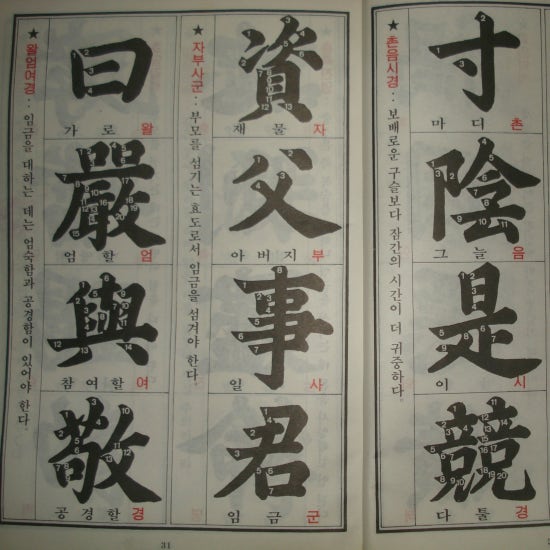 寸
마디 촌
陰
그늘 음
是
이 시
競
다툴 경
★ 촌음시경 : 보배로운 구슬보다 잠간의 시간이 더 귀중하다.
資
재물 자
父
아버지 부
事
일 사
君
임금 군
★ 자부사군 : 부모를 섬기는 효도로서 임금을 섬겨야 한다.
曰
가로 왈
嚴
엄할 엄
與
참여할 여
敬
공경할 경
★ 왈엄여경 : 임금을 대하는 데는 엄숙함과 공경함이 있어야 한다.
31